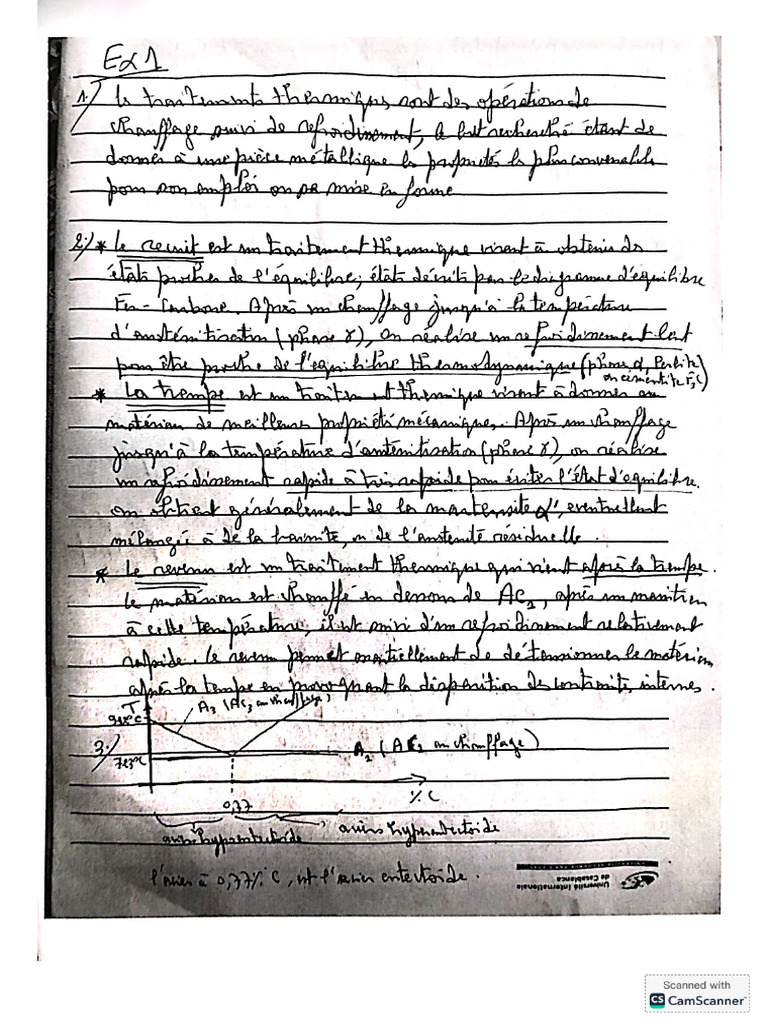 Ex 1
1/ Les traitements thermiques sont des opérations de
chauffage suivi de refroidissement, le but recherché étant de
donner à une pièce métallique les propriétés les plus convenables
pour son emploi ou sa mise en forme
2/ * Le recuit est un traitement thermique visant à obtenir des
états proches de l'équilibre; états décrits par le diagramme d'équilibre
Fer - Carbone. Après un chauffage jusqu'à la température
d'austénitisation (phase γ), on réalise un refroidissement lent
pour être proche de l'équilibre thermodynamique (phase α, Perlite
ou cementite F3C)
* La trempe est un traitement thermique visant à donner au
matériau de meilleures propriété mécaniques. Après un chauffage
jusqu'à la température d'austenitisation (phase γ), on réalise
un refroidissement rapide à très rapide pour éviter l'état d'equilibre.
on obtient généralement de la martensite α', éventuellement
mélangée à de la bainite, ou de l'austenité résiduelle.
* Le revenu est un traitement thermique qui vient après la trempe.
le matériau est chauffé en dessous de AC1, après un maintien
à cette température, il est suivi d'un refroidissement relativement
rapide. le revenu permet essentiellement de détensionner le matériau
après la trempe en provoquant la disparition des contraintes internes.
T
912°C
A3 (AC3 au chauffage)
3/
723°C
A1 (AC1 au chauffage)
0,77
% C
aciers hypoeutectoide
aciers hypereutectoide
l'acier à 0,77% C, est l'acier eutectoide.
Université Internationale
de Casablanca
Scanned with
CS CamScanner